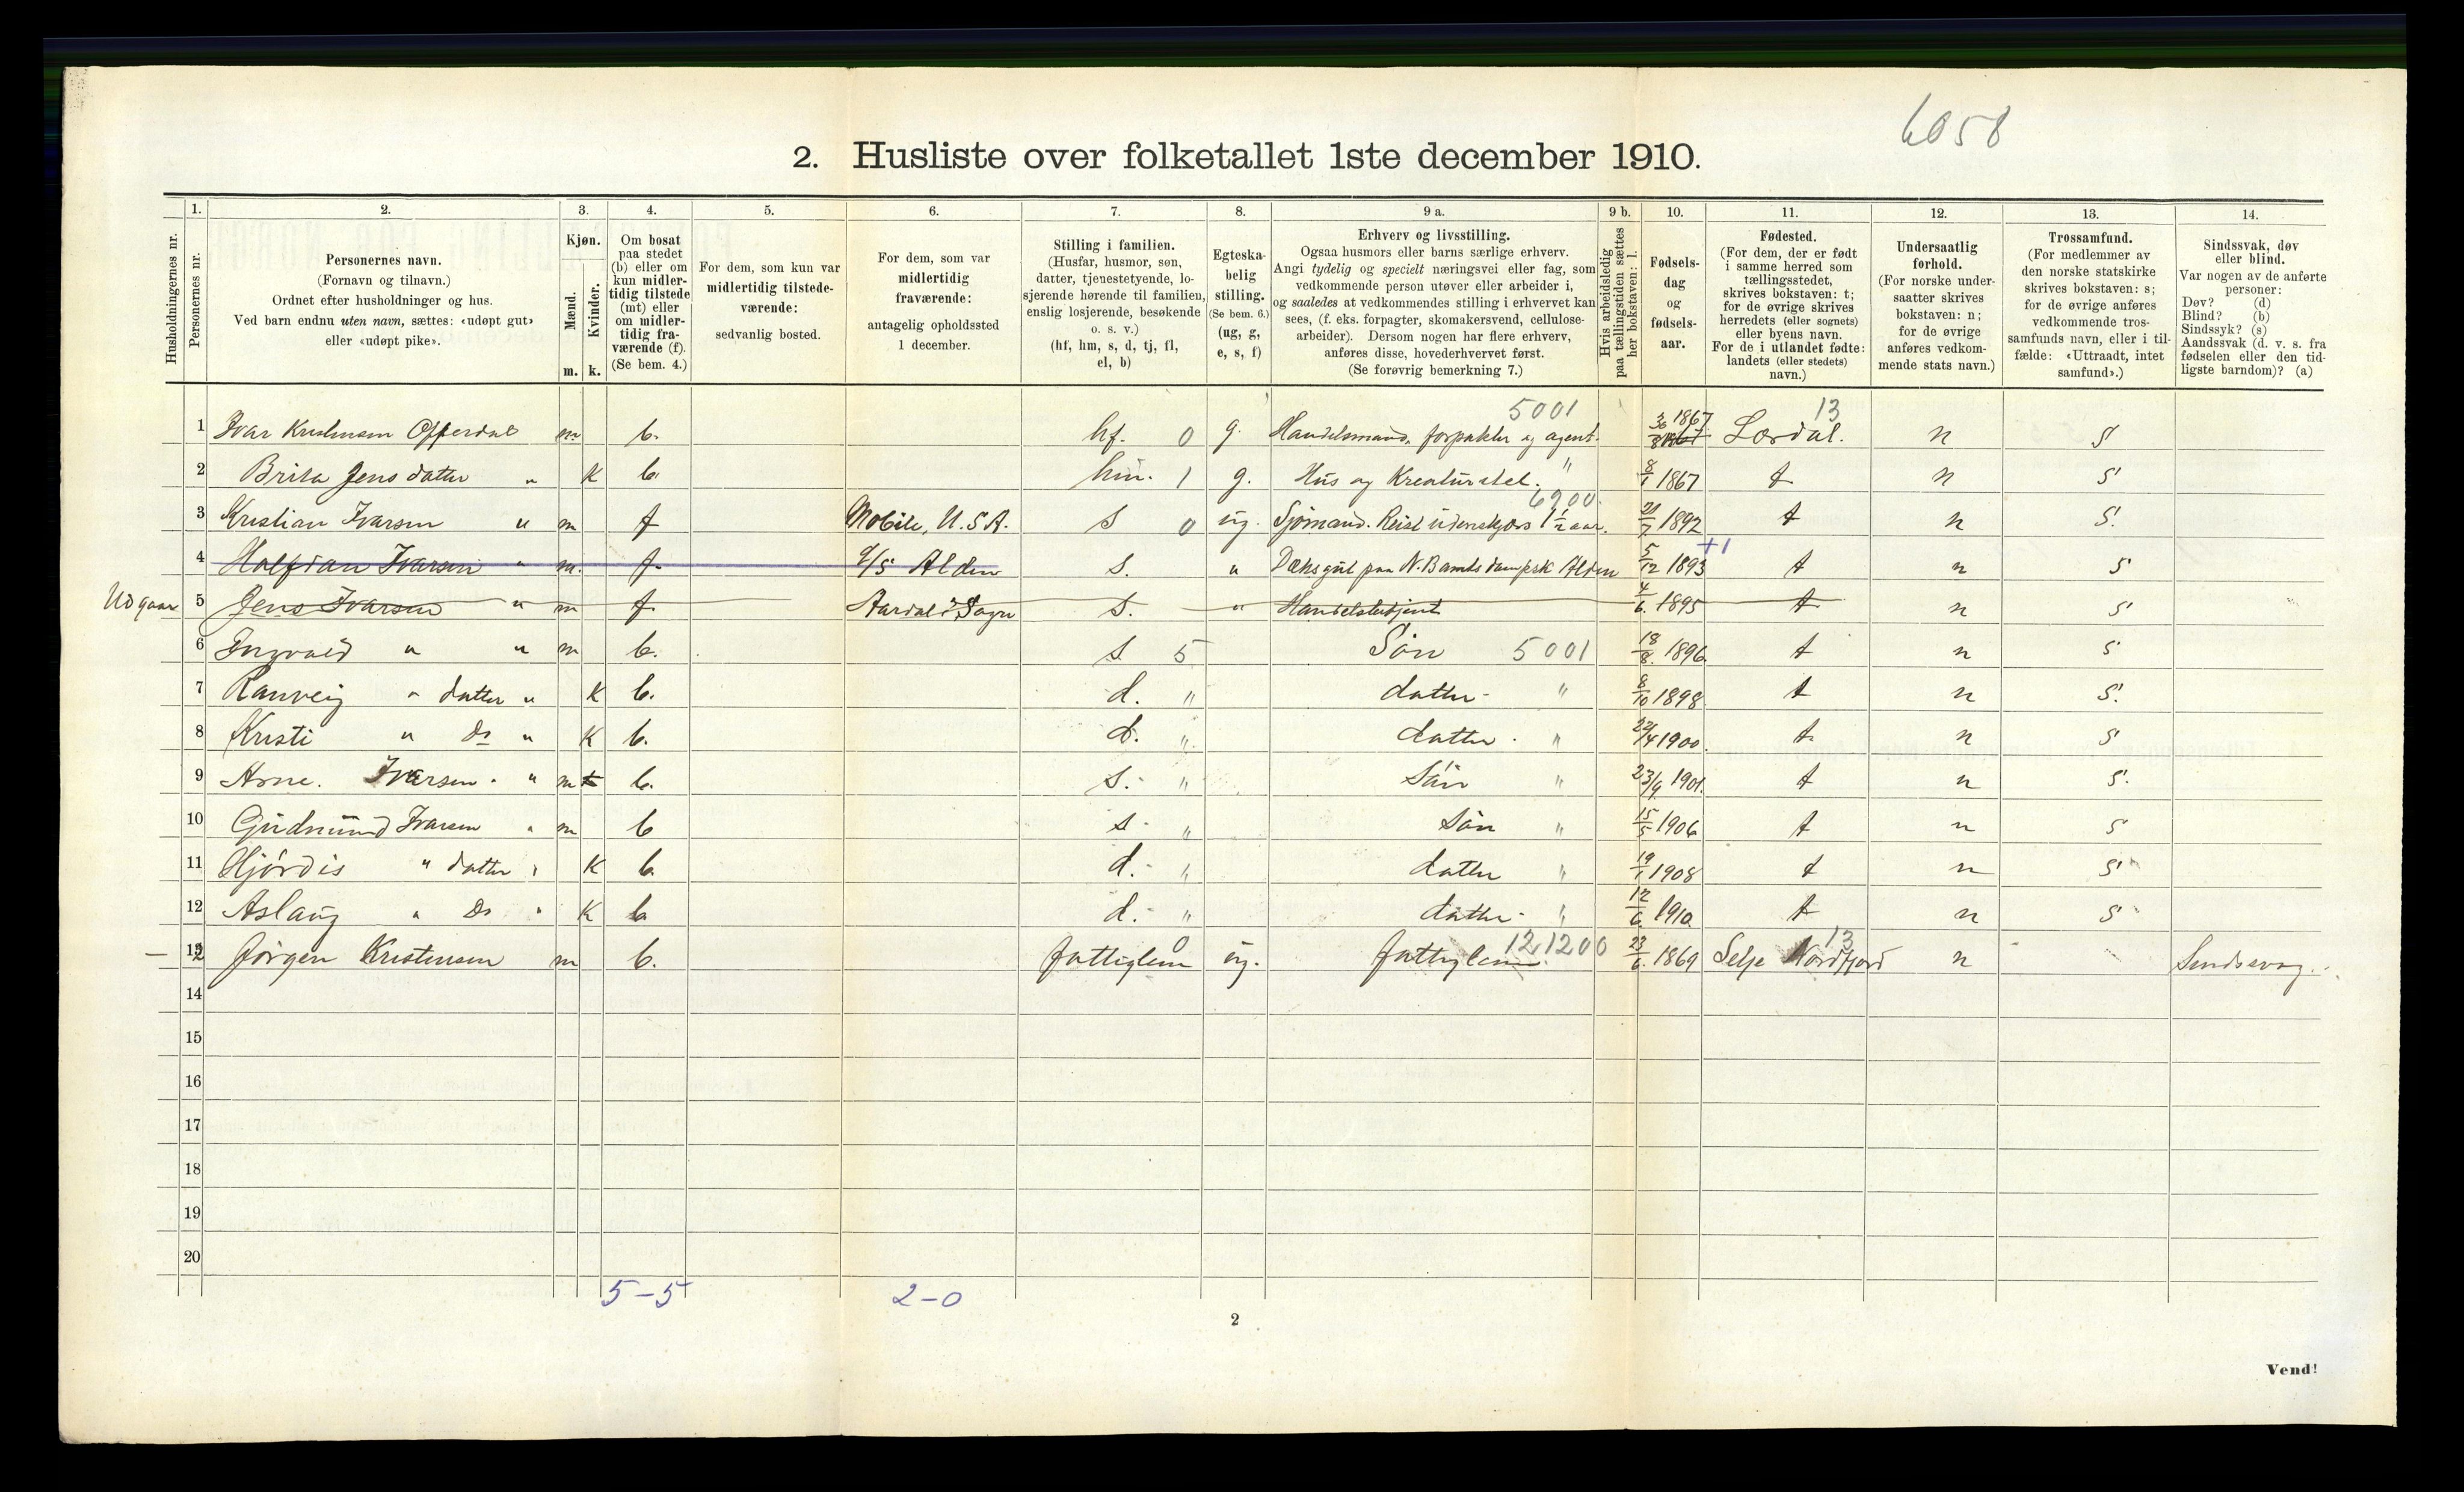 6058
2. Husliste over folketallet 1ste december 1910.
Husholdningernes nr.
1. Personernes nr.
2. Personernes navn. (Fornavn og tilnavn.) Ordnet efter husholdninger og hus. Ved barn endnu uten navn, sættes: «udøpt gut» eller «udøpt pike».
3. Kjøn. Mænd. m. Kvinder. k.
4. Om bosat paa stedet (b) eller om kun midlertidig tilstede (mt) eller om midlertidig fraværende (f). (Se bem. 4.)
5. For dem, som kun var midlertidig tilstedeværende: sedvanlig bosted.
6. For dem, som var midlertidig fraværende: antagelig opholdssted 1 december.
7. Stilling i familien. (Husfar, husmor, søn, datter, tjenestetyende, losjerende hørende til familien, enslig losjerende, besøkende o. s. v.) (hf, hm, s, d, tj, fl, el, b)
8. Egteskabelig stilling. (Se bem. 6.) (ug, g, e, s, f)
9 a. Erhverv og livsstilling. Ogsaa husmors eller barns særlige erhverv. Angi tydelig og specielt næringsvei eller fag, som vedkommende person utøver eller arbeider i, og saaledes at vedkommendes stilling i erhvervet kan sees, (f. eks. forpagter, skomakersvend, cellulosearbeider). Dersom nogen har flere erhverv, anføres disse, hovederhvervet først. (Se forøvrig bemerkning 7.)
9 b. Hvis arbeidsledig paa tællingstiden sættes her bokstaven: l.
10. Fødselsdag og fødselsaar.
11. Fødested. (For dem, der er født i samme herred som tællingsstedet, skrives bokstaven: t; for de øvrige skrives herredets (eller sognets) eller byens navn. For de i utlandet fødte: landets (eller stedets) navn.)
12. Undersaatlig forhold. (For norske undersaatter skrives bokstaven: n; for de øvrige anføres vedkommende stats navn.)
13. Trossamfund. (For medlemmer av den norske statskirke skrives bokstaven: s; for de øvrige anføres vedkommende trossamfunds navn, eller i tilfælde: «Uttraadt, intet samfund».)
14. Sindssvak, døv eller blind. Var nogen av de anførte personer: Døv? (d) Blind? (b) Sindssyk? (s) Aandssvak (d. v. s. fra fødselen eller den tidligste barndom)? (a)
1 Ivar Kristensen Offerdal m b. hf. 0 g. Handelsmand, forpakter og agent. 5001 1867 Lærdal. 13 n s
2 Brita Jensdatter " k b. hm. 1 g. Hus og Kreaturstel. " 8/1 1867 t n s
3 Kristian Ivarsen " m f Mobile, U.S.A. s 0 ug. Sjömand. Reist udenskjærs 1 1/2 aar. 6900 21/7 1892 t n s.
4 Halfdan Ivarsen " m. f. D/S Alden s. " Dæksgut paa N. B. amts dampsk Alden 5/12 1893 +1 t n s
Udgaar 5 Jens Ivarsen " m f. Aardal i Sogn s. " Handelsbetjent 4/6. 1895 t n s
6 Ingvald " " m b. s 5 Sön 5001 18/8. 1896. t n s
7 Ranveig " datter " k b. d. " datter " 8/10 1898 t n s.
8 Kristi " Do " k b. d. " datter. " 22/4 1900. t. n s
9 Arne. Ivarsen. " m b. s. " Sön " 23/9 1901. t n s.
10 Gudmund Ivarsen " m b s " Sön " 15/5 1906 t n s
11 Hjördis " datter " k b. d. " datter " 19/1 1908 t n s
12 Aslaug " Do " k b d. " datter " 12/6. 1910. t n s
13 Jörgen Kristensen m b. fattiglem 0 ug. fattiglem 121200 23/6. 1869 Selje Nordfjord 13 n Sindsvag.
14
15
16
17
18
19
20
5-5 2-0
2
Vend!